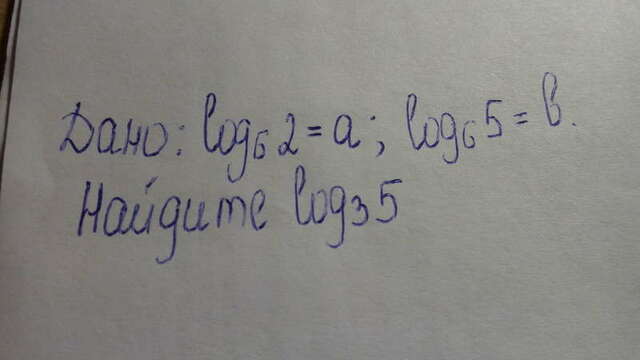 Дано: log₆2=a; log₆5=b.
Найдите log₃5